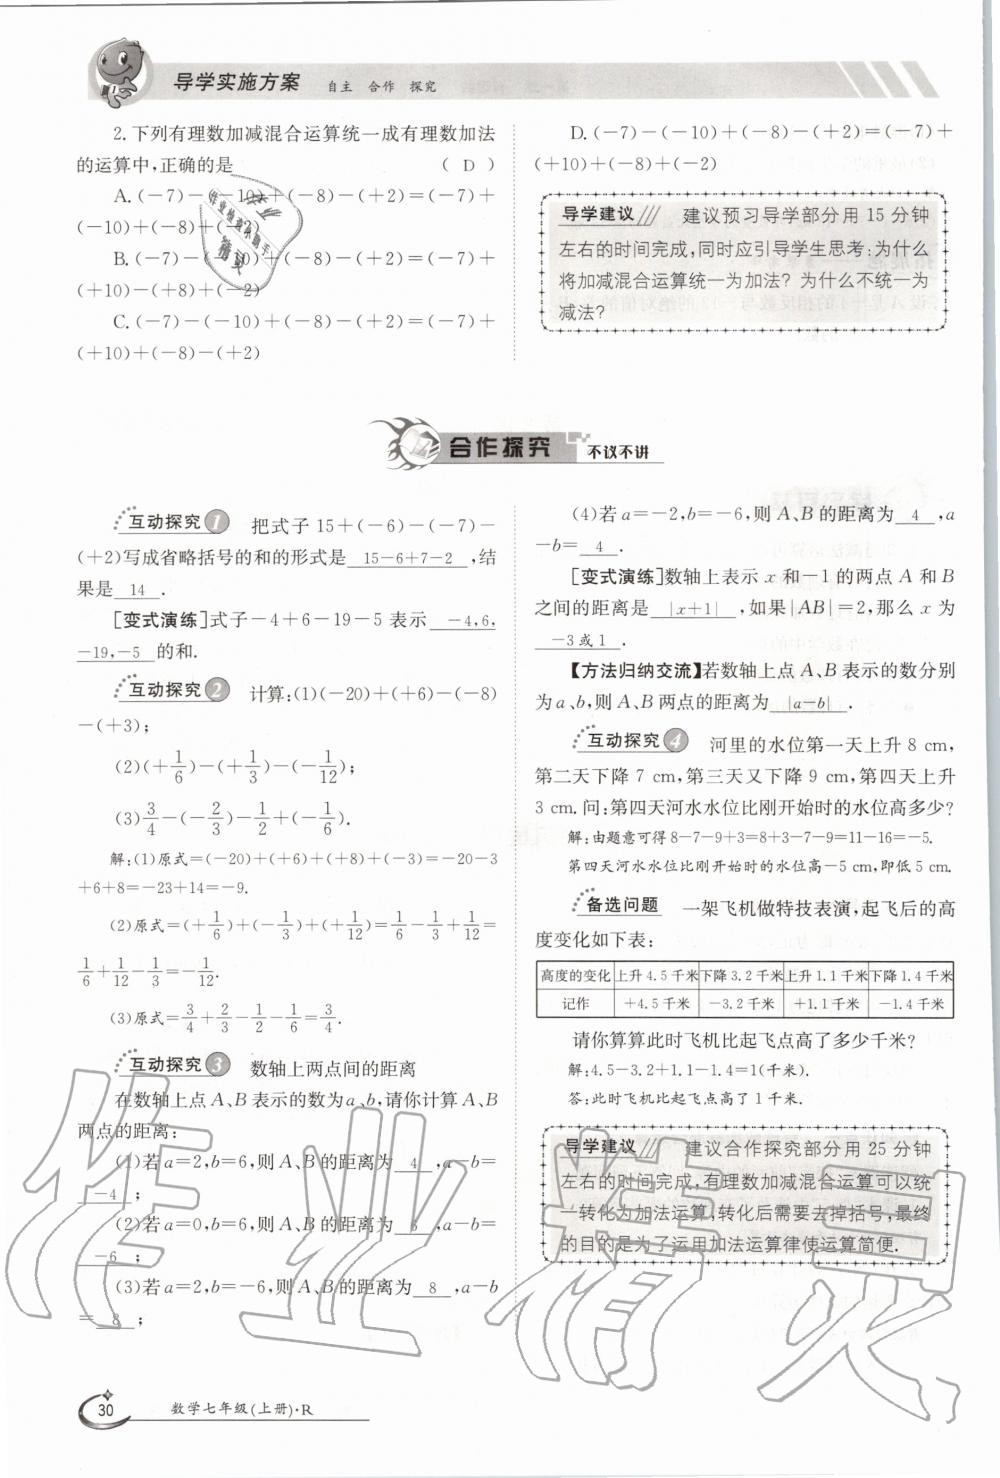 导学实施方案 自主 合作 探究
2.下列有理数加减混合运算统一成有理数加法
的运算中,正确的是 ( D )
A.(-7)-(-10)+(-8)-(+2)=(-7)+
(-10)+(-8)+(-2)
B.(-7)-(-10)+(-8)-(+2)=(-7)+
(+10)-(+8)+(-2)
C.(-7)-(-10)+(-8)-(+2)=(-7)+
(+10)+(-8)-(+2)
D.(-7)-(-10)+(-8)-(+2)=(-7)+
(+10)+(-8)+(-2)
导学建议 建议预习导学部分用 15 分钟
左右的时间完成,同时应引导学生思考:为什么
将加减混合运算统一为加法? 为什么不统一为
减法?
合作探究 不议不讲
互动探究1 把式子 15+(-6)-(-7)-
(+2)写成省略括号的和的形式是 15-6+7-2 ,结
果是 14 .
[变式演练]式子-4+6-19-5 表示 -4,6,
-19,-5 的和.
互动探究2 计算:(1)(-20)+(+6)-(-8)
-(+3);
(2)(+1/6)-(+1/3)-(-1/12);
(3)3/4-(-2/3)-1/2+(-1/6).
解:(1)原式=(-20)+(+6)+(+8)+(-3)=-20-3
+6+8=-23+14=-9.
(2)原式=(+1/6)+(-1/3)+(+1/12)=1/6-1/3+1/12=
1/6+1/12-1/3=-1/12.
(3)原式=3/4+2/3-1/2-1/6=3/4.
互动探究3 数轴上两点间的距离
在数轴上点 A、B 表示的数为 a、b,请你计算 A、B
两点的距离:
(1)若 a=2,b=6,则 A、B 的距离为 4 ,a-b=
-4 ;
(2)若 a=0,b=6,则 A、B 的距离为 6 ,a-b=
-6 ;
(3)若 a=2,b=-6,则 A、B 的距离为 8 ,a-b
= 8 ;
(4)若 a=-2,b=-6,则 A、B 的距离为 4 ,a
-b= 4 .
[变式演练]数轴上表示 x 和-1 的两点 A 和 B
之间的距离是 |x+1| ,如果|AB|=2,那么 x 为
-3或1 .
【方法归纳交流】若数轴上点 A、B 表示的数分别
为 a、b,则 A、B 两点的距离为 |a-b| .
互动探究4 河里的水位第一天上升 8 cm,
第二天下降 7 cm,第三天又下降 9 cm,第四天上升
3 cm.问:第四天河水水位比刚开始时的水位高多少?
解:由题意可得 8-7-9+3=8+3-7-9=11-16=-5.
第四天河水水位比刚开始时的水位高-5 cm,即低 5 cm.
备选问题 一架飞机做特技表演,起飞后的高
度变化如下表:
高度的变化 上升 4.5 千米 下降 3.2 千米 上升 1.1 千米 下降 1.4 千米
记作 +4.5 千米 -3.2 千米 +1.1 千米 -1.4 千米
请你算算此时飞机比起飞点高了多少千米?
解:4.5-3.2+1.1-1.4=1(千米).
答:此时飞机比起飞点高了 1 千米.
导学建议 建议合作探究部分用 25 分钟
左右的时间完成,有理数加减混合运算可以统
一转化为加法运算,转化后需要去掉括号,最终
的目的是为了运用加法运算律使运算简便.
30 数学七年级(上册)·R
作业精灵